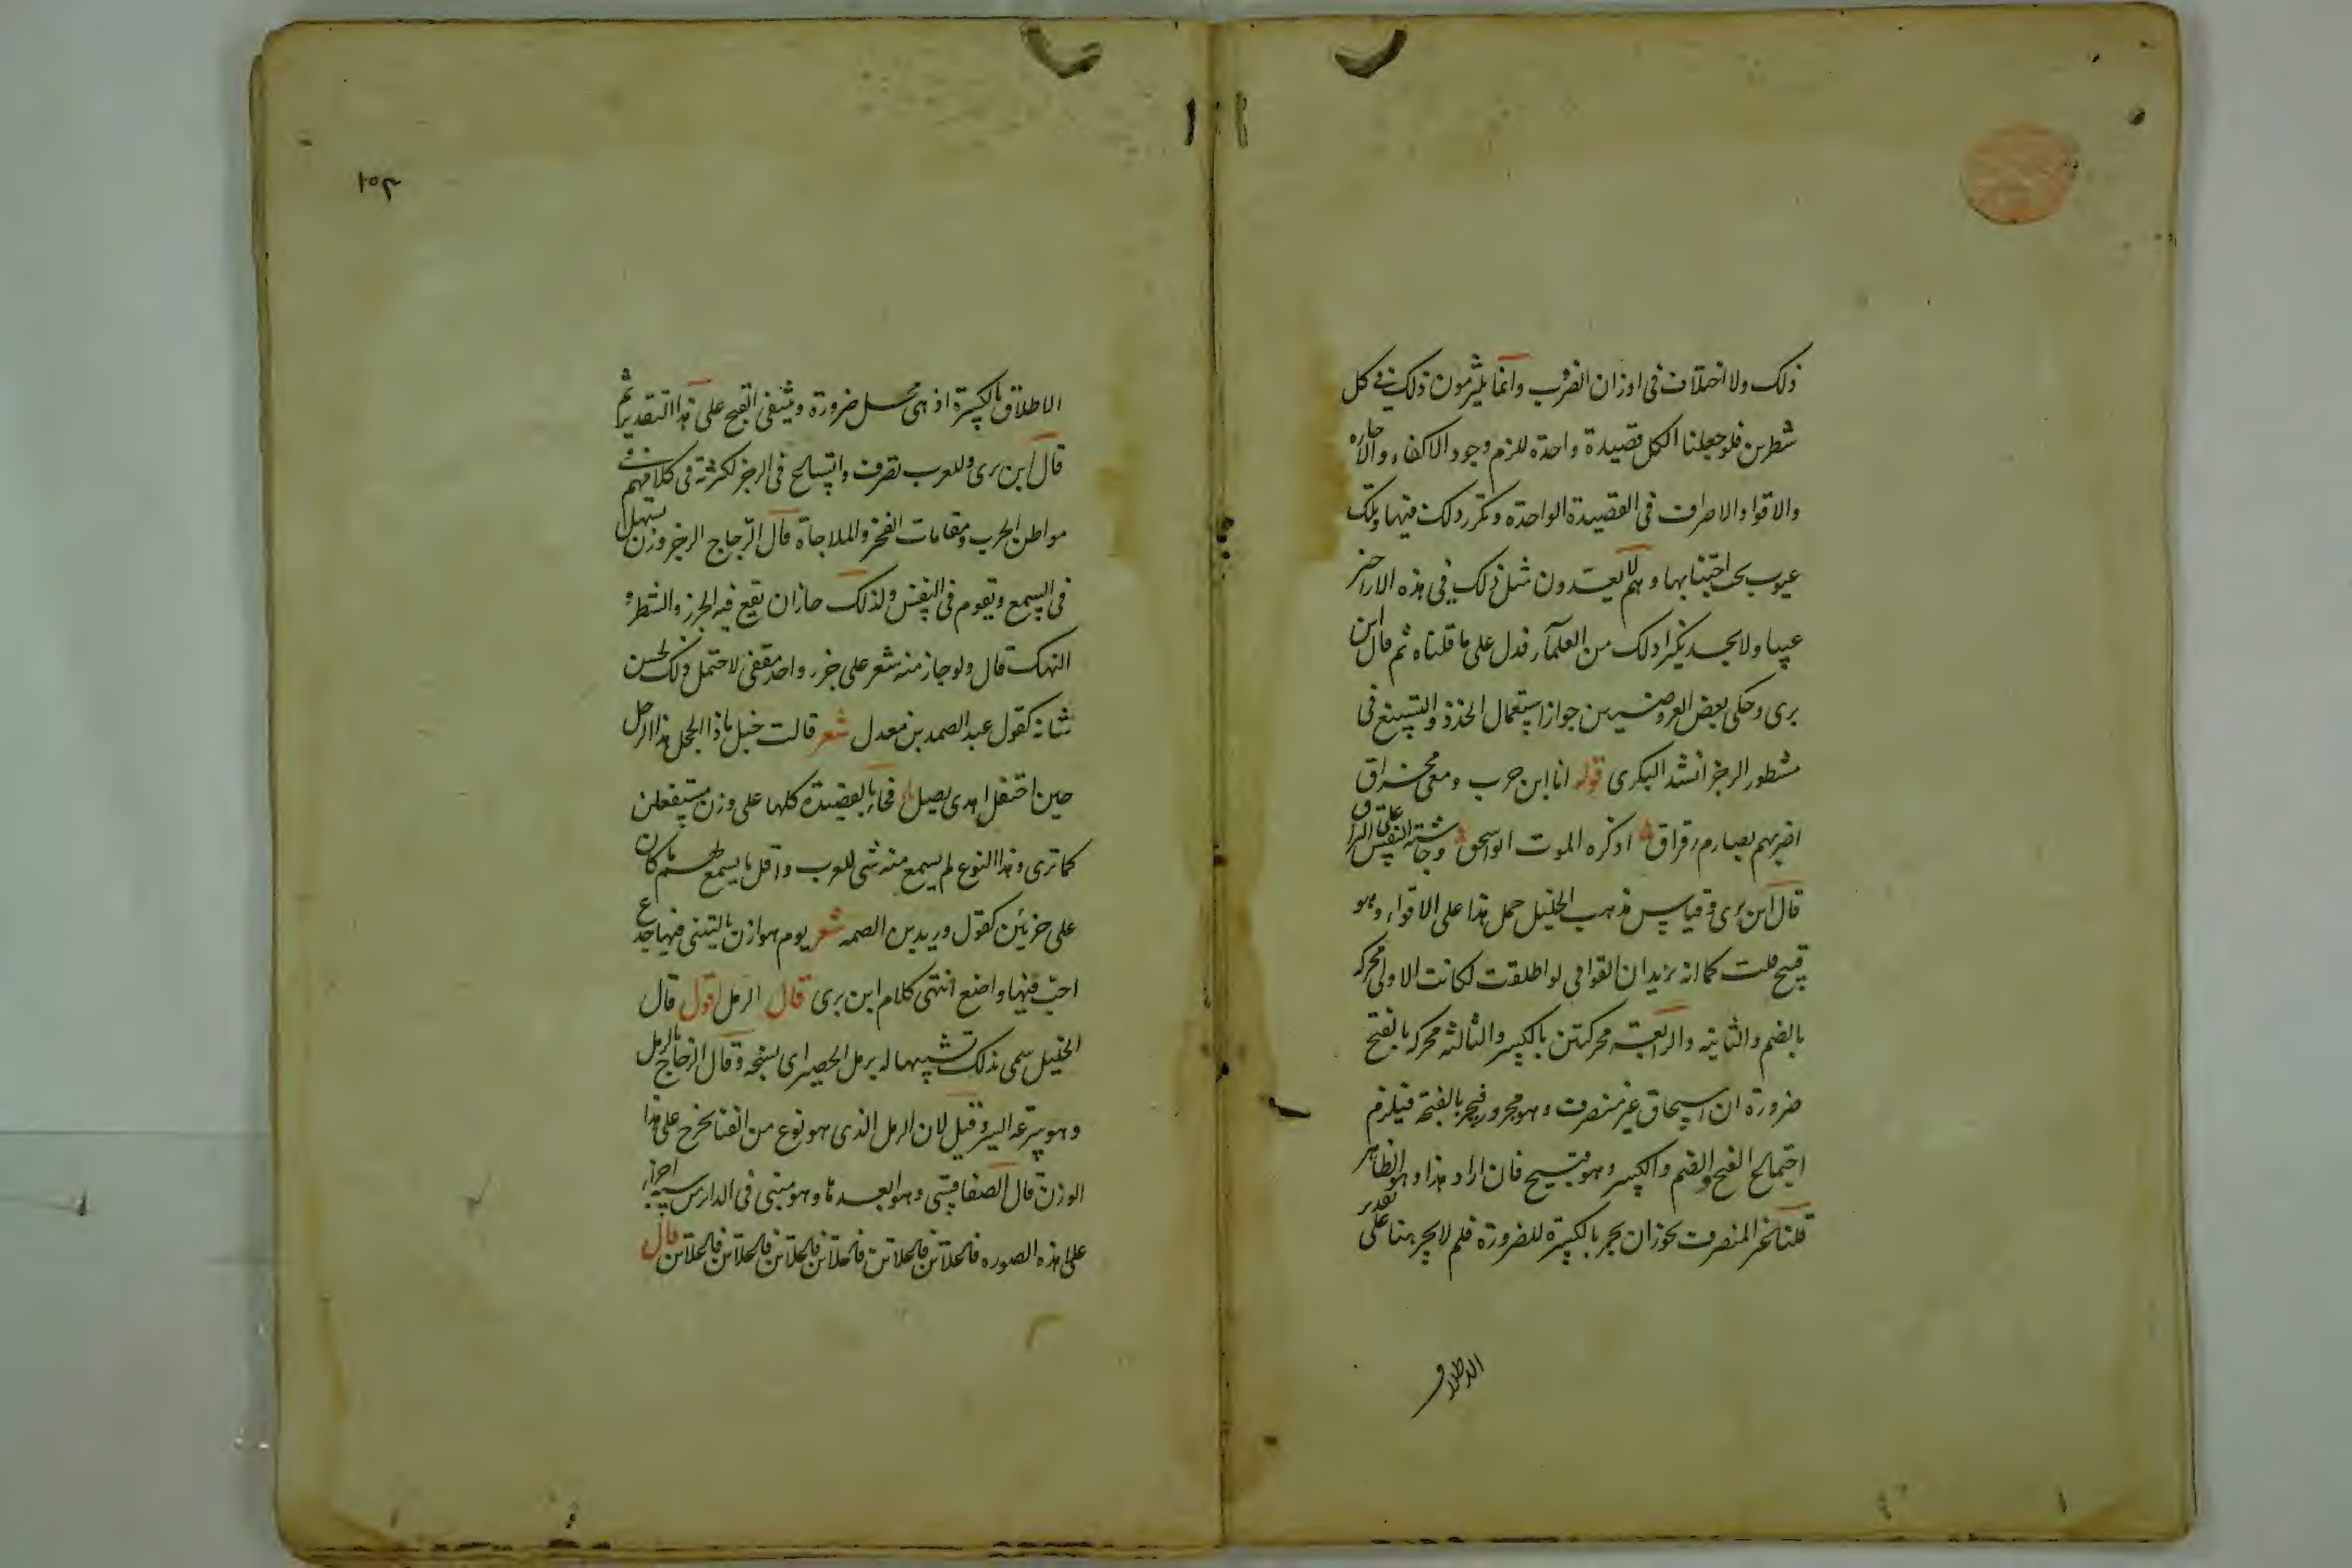 ذلك ولا اختلاف فى اوزان الضرب وانما يلتزمون ذلك فى كل
شطرين فلو جعلنا الكل قصيدة واحدة للزم وجود الاكفاء والاجازة
والاقوا والاصراف فى القصيدة الواحدة وتكرر ذلك فيها وتلك
عيوب يجب اجتنابها وهم لا يعتدون مثل ذلك فى هذه الاراجز
عيبا ولا يجد نكيرا لذلك من العلمآء فدل على ما قلناه ثم قال ابن
برى وحكى بعض العروضيين جواز استعمال الحذذ والتسبيغ فى
مشطور الرجز انشد البكرى قوله انا ابن حرب ومعى مخراق
اضربهم بصارم رقراق اذ كره الموت ابو اسحق وجاشت النفس على التراق
قال ابن برى وقياس مذهب الخليل حمل هذا على الاقواء وهو
قبيح قلت كما انه يريد ان القوافى لو اطلقت لكانت الاولى محركة
بالضم والثانية والرابعة محركتين بالكسر والثالثة محركة بالفتح
ضرورة ان اسحاق غير منصرف وهو مجرور فيجر بالفتحة فيلزم
اجتماع الفتح والضم والكسر وهو قبيح فان اراد هذا وهو الظاهر
قلنا غير المنصرف يجوز ان يجر بالكسرة للضرورة فلم لا يجر هنا على تقدير
الاطلاق
١٥٤
الاطلاق بالكسرة اذ هى محل ضرورة وينتفى القبح على هذا التقدير ثم
قال ابن برى وللعرب تصرف واتساع فى الرجز لكثرته فى كلامهم فى
مواطن الحرب ومقامات الفخر والملاحاة قال الزجاج الرجز وزن يسهل
فى السمع ويقوم فى النفس ولذلك جاز ان يقع فيه الجزء والشطر و
النهك قال ولو جاز منه شعر على جزء واحد مقفى لاحتمل ذلك لحسن
بنائه كقول عبد الصمد بن معدل شعر قالت خبل ماذا الخجل هذا الرجل
حين احتفل اهدى بصل فجاء بالقصيدة كلها على وزن مستفعلن
كما ترى وهذا النوع لم يسمع منه شى للعرب واقل ما يسمع لهم ما كان
على جزئين كقول دريد بن الصمه شعر يوم هوازن يا ليتنى فيها جذع
اخب فيها واضع انتهى كلام ابن برى قال الرمل اقول قال
الخليل سمى بذلك تشبيها له برمل الحصير اى نسجه وقال الزجاج بالرمل
وهو سرعة السير وقيل لان الرمل الذى هو نوع من الغنا يخرج على هذا
الوزن قال الصفاقسى وهو ابعدها وهو مبنى فى الدائرة من ستة اجزاء
على هذه الصوره فاعلاتن فاعلاتن فاعلاتن فاعلاتن فاعلاتن فاعلاتن قال